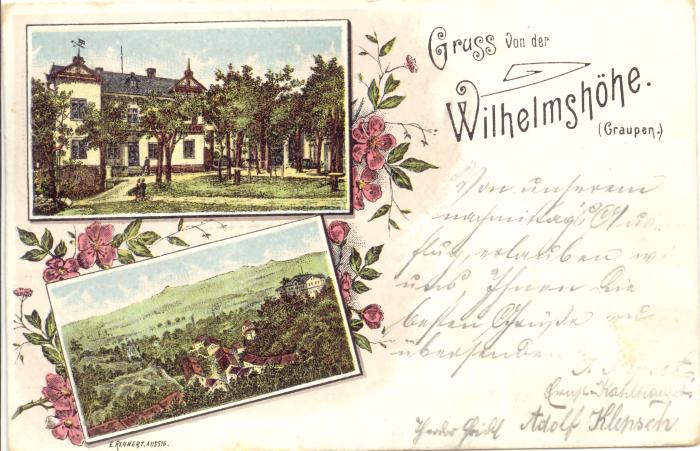 Gruss von der
Wilhelmshöhe.
(Graupen.)
Von unserem
nachmitag's Aus-
flug, erlauben wir
uns, Ihnen die
besten Grüße zu
übersenden
Adolf Klepsch
E. RENNERT. AUSSIG.